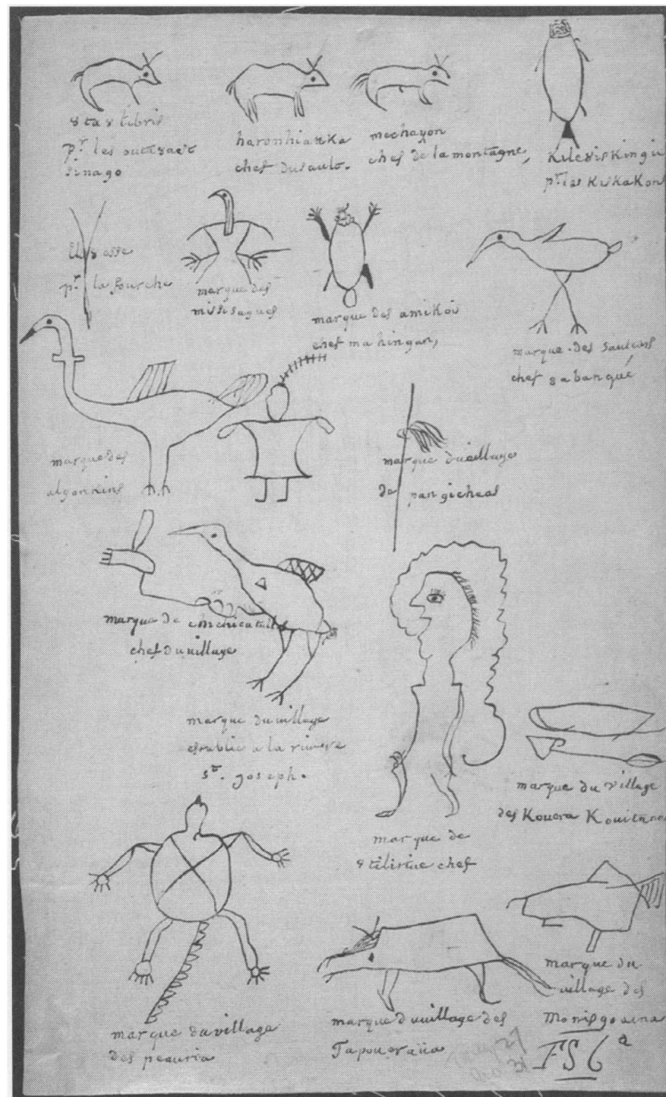 8ta8libris
p.r les outt8aes
sinago
haronhiateka
chef du sault.
mechayon
chef de la montagne,
Kile8iskingié
p.r les KisKaKons
p.r la fourche
marque des
missisagues
marque des amikois
chef mahingan,
marque des sauteurs
chef 8abanqué
marque des
algonkins
marque du village
de pangicheas
marque de
chef du village
marque du village
establie a la riviere
s.t joseph.
marque de
8tilirine chef
marque du village
des Kouera Kouitanou
marque du village
des peauria
marque du village des
Tapoueraüa
marque du
village des
Monisgoaena
FS6a